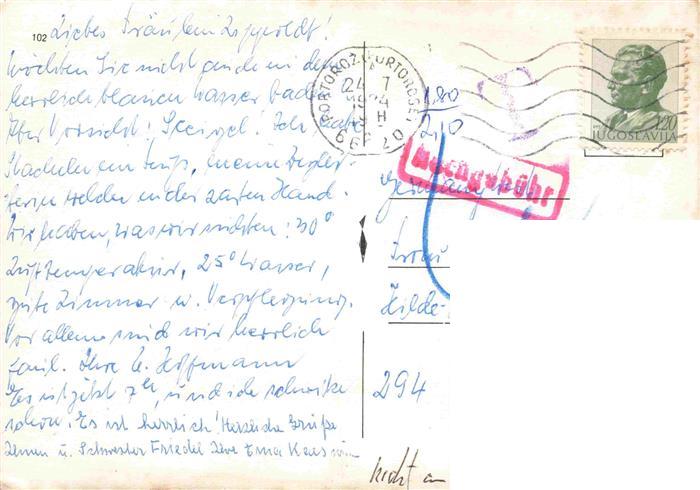 102 Liebes Fräulein
Möchten Sie nicht auch in dem
herrlich blauen Wasser baden
Aber Vorsicht! Seeigel! Ich habe
Stacheln im Fuß, meine
in der zarten Hand.
Wir haben, was wir möchten: 30°
Lufttemperatur, 25° Wasser,
gute Zimmer u. Verpflegung.
Vor allem sind wir herrlich
faul. Ihre E. Hoffmann
Es ist jetzt 7 h, und ich schwitze
schon. Es ist herrlich! Herzliche Grüße
Ihnen u. Schwester Friedel Ihre Erna
PORTOROŽ-PORTOROSE
24 7
1974
H
66320
T
180
210
3.20
JUGOSLAVIJA
Germany
Nachgebühr
Frau
Hilde-
294
nicht